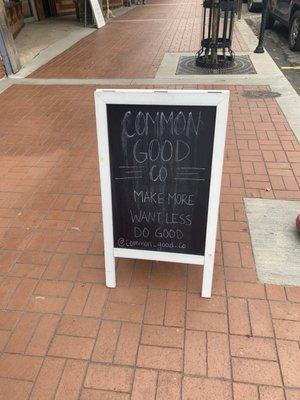 COMMON
GOOD
CO
MAKE MORE
WANT LESS
DO GOOD
@common_good_co